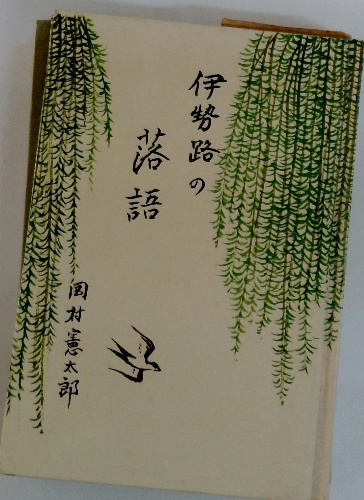 伊勢路の
落語
岡村憲太郎